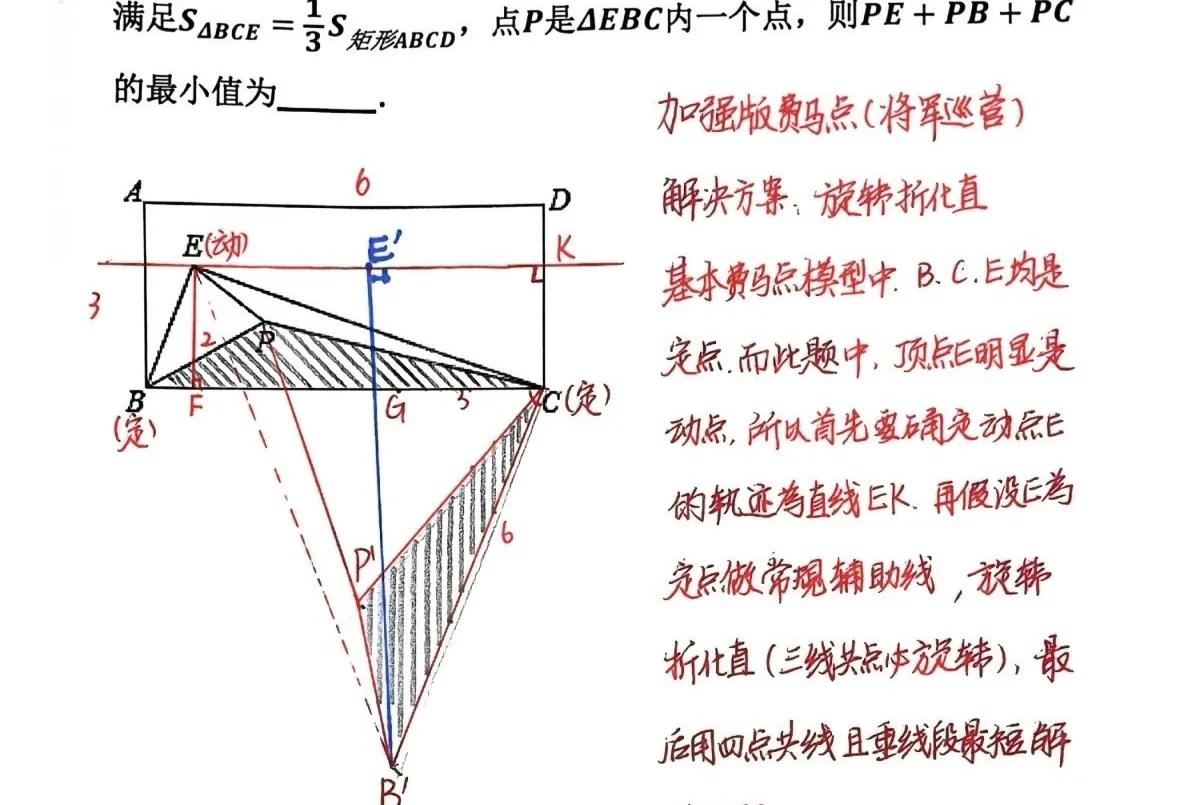 满足S△BCE = 1/3 S矩形ABCD，点P是ΔEBC内一个点，则PE + PB + PC
的最小值为______.
加强版费马点(将军巡营)
解决方案：旋转折化直
基本费马点模型中. B.C.E均是
定点.而此题中, 顶点E明显是
动点, 所以首先要确定动点E
的轨迹為直线EK. 再假设E為
定点做常规辅助线, 旋转
折化直(三线共点必旋转), 最
后用四点共线且垂线段最短解
A
6
D
E(动)
E'
K
3
2
P
B
(定)
F
G
3
C(定)
P'
6
B'